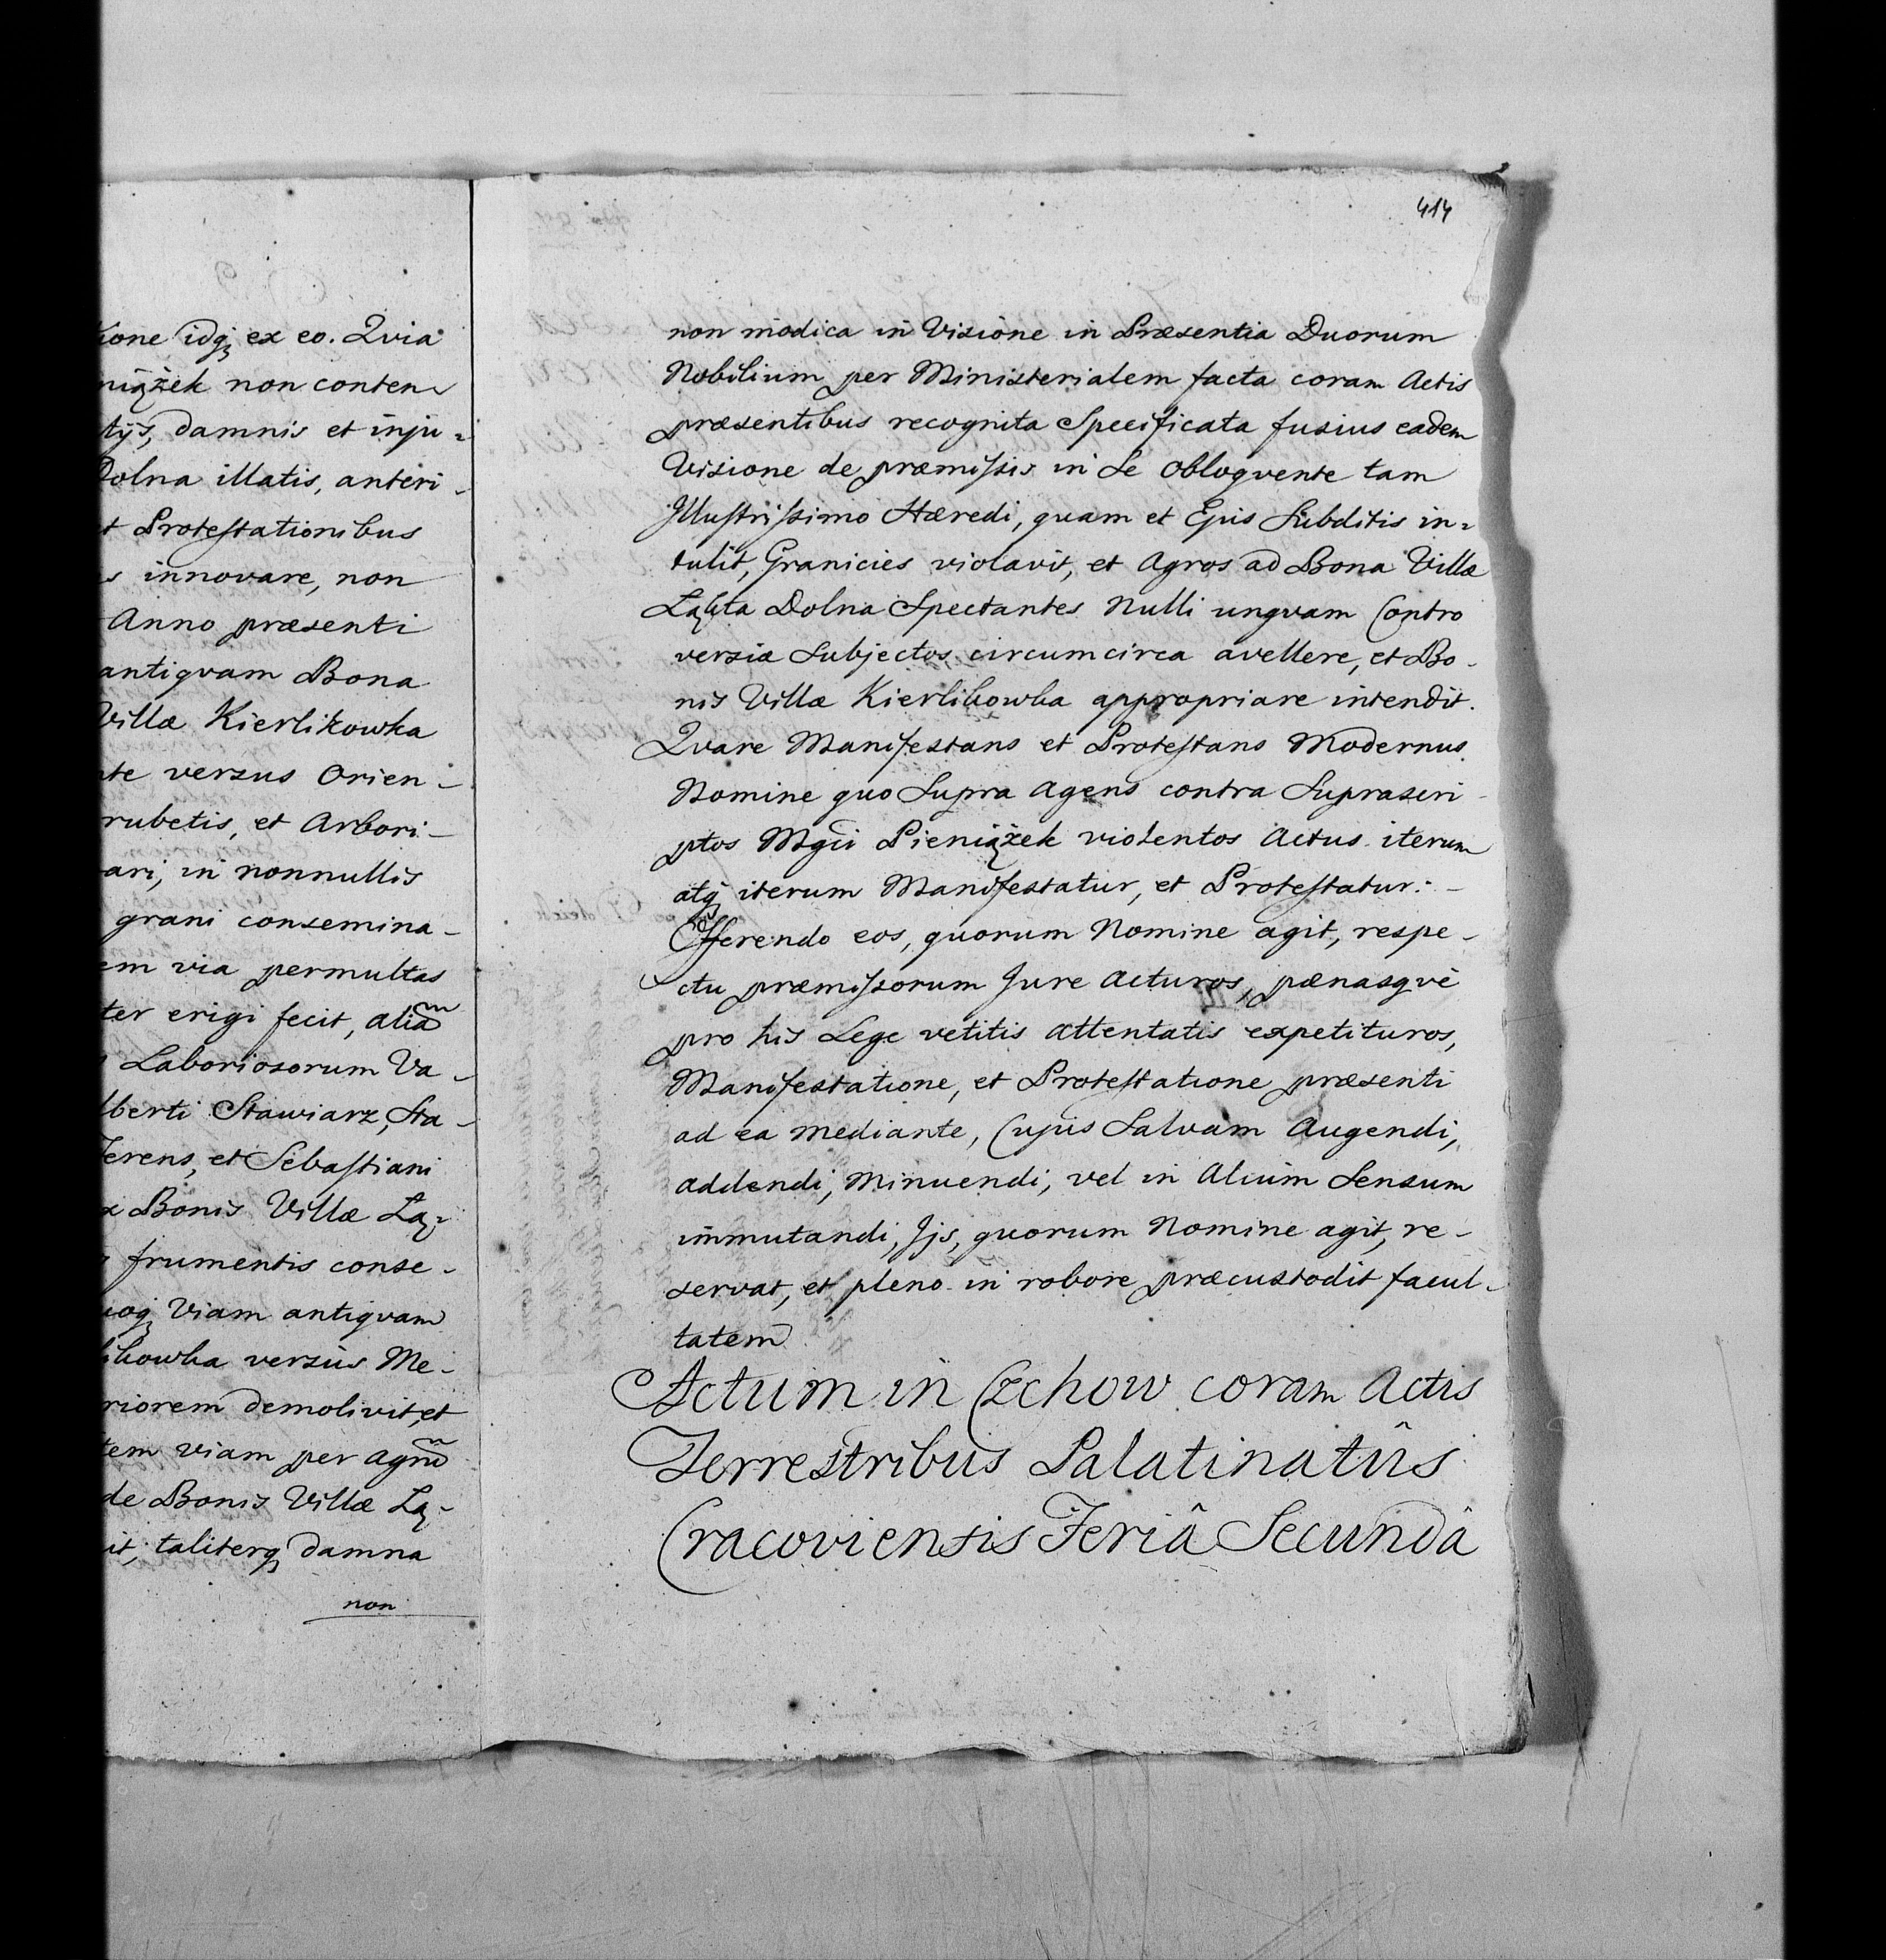 idq; ex eo. Qvia
non conten
damnis et inju=
Dolna illatis, anteri-
Protestationibus
innovare, non
Anno præsenti
antiqvam Bona
Villæ Kierlikowka
versus Orien-
rubetis, et Arbori-
in nonnullis
grani consemina-
via permultas
erigi fecit, aliã
Laboriosorum Va-
Stawiarz, Sta-
et Sebastiani
Bonis Villæ Łą=
frumentis conse-
Viam antiqvam
versus Me-
demolivit, et
viam per agrũ
de Bonis Villæ Łą-
taliterq; damna
non
414
non modica in Visione in Præsentia Duorum
Nobilium per Ministerialem facta coram Actis
præsentibus recognita Specificata fusius eadem
Visione de præmissis in Se obloqvente tam
Illustrissimo Hæredi, quam et Ejus Subditis in=
tulit, Granicies violavit, et Agros ad Bona Villæ
Łąkta Dolna Spectantes Nulli unqvam Contro
versiæ Subjectos circumcirca avellere, et Bo-
nis Villæ Kierlikowka appropriare intendit.
Qvare Manifestans et Protestans Modernus
Nomine quo Supra Agens contra Suprascri-
ptos Mgci Pieniążek violentos Actus iterum
atq; iterum Manifestatur, et Protestatur: -
Offerendo eos, quorum Nomine agit, respe-
ctu præmissorum Jure Acturos, pænasqve
pro his Lege vetitis attentatis expetituros,
Manifestatione, et Protestatione præsenti
ad ea mediante, Cujus Salvam Augendi,
addendi, Minuendi, vel in Alium Sensum
immutandi, Ijs, quorum Nomine agit, re-
servat, et pleno in robore præcustodit facul-
tatem
Actum in Czchow coram Actis
Terrestribus Palatinatûs
Cracoviensis Feriâ Secundâ